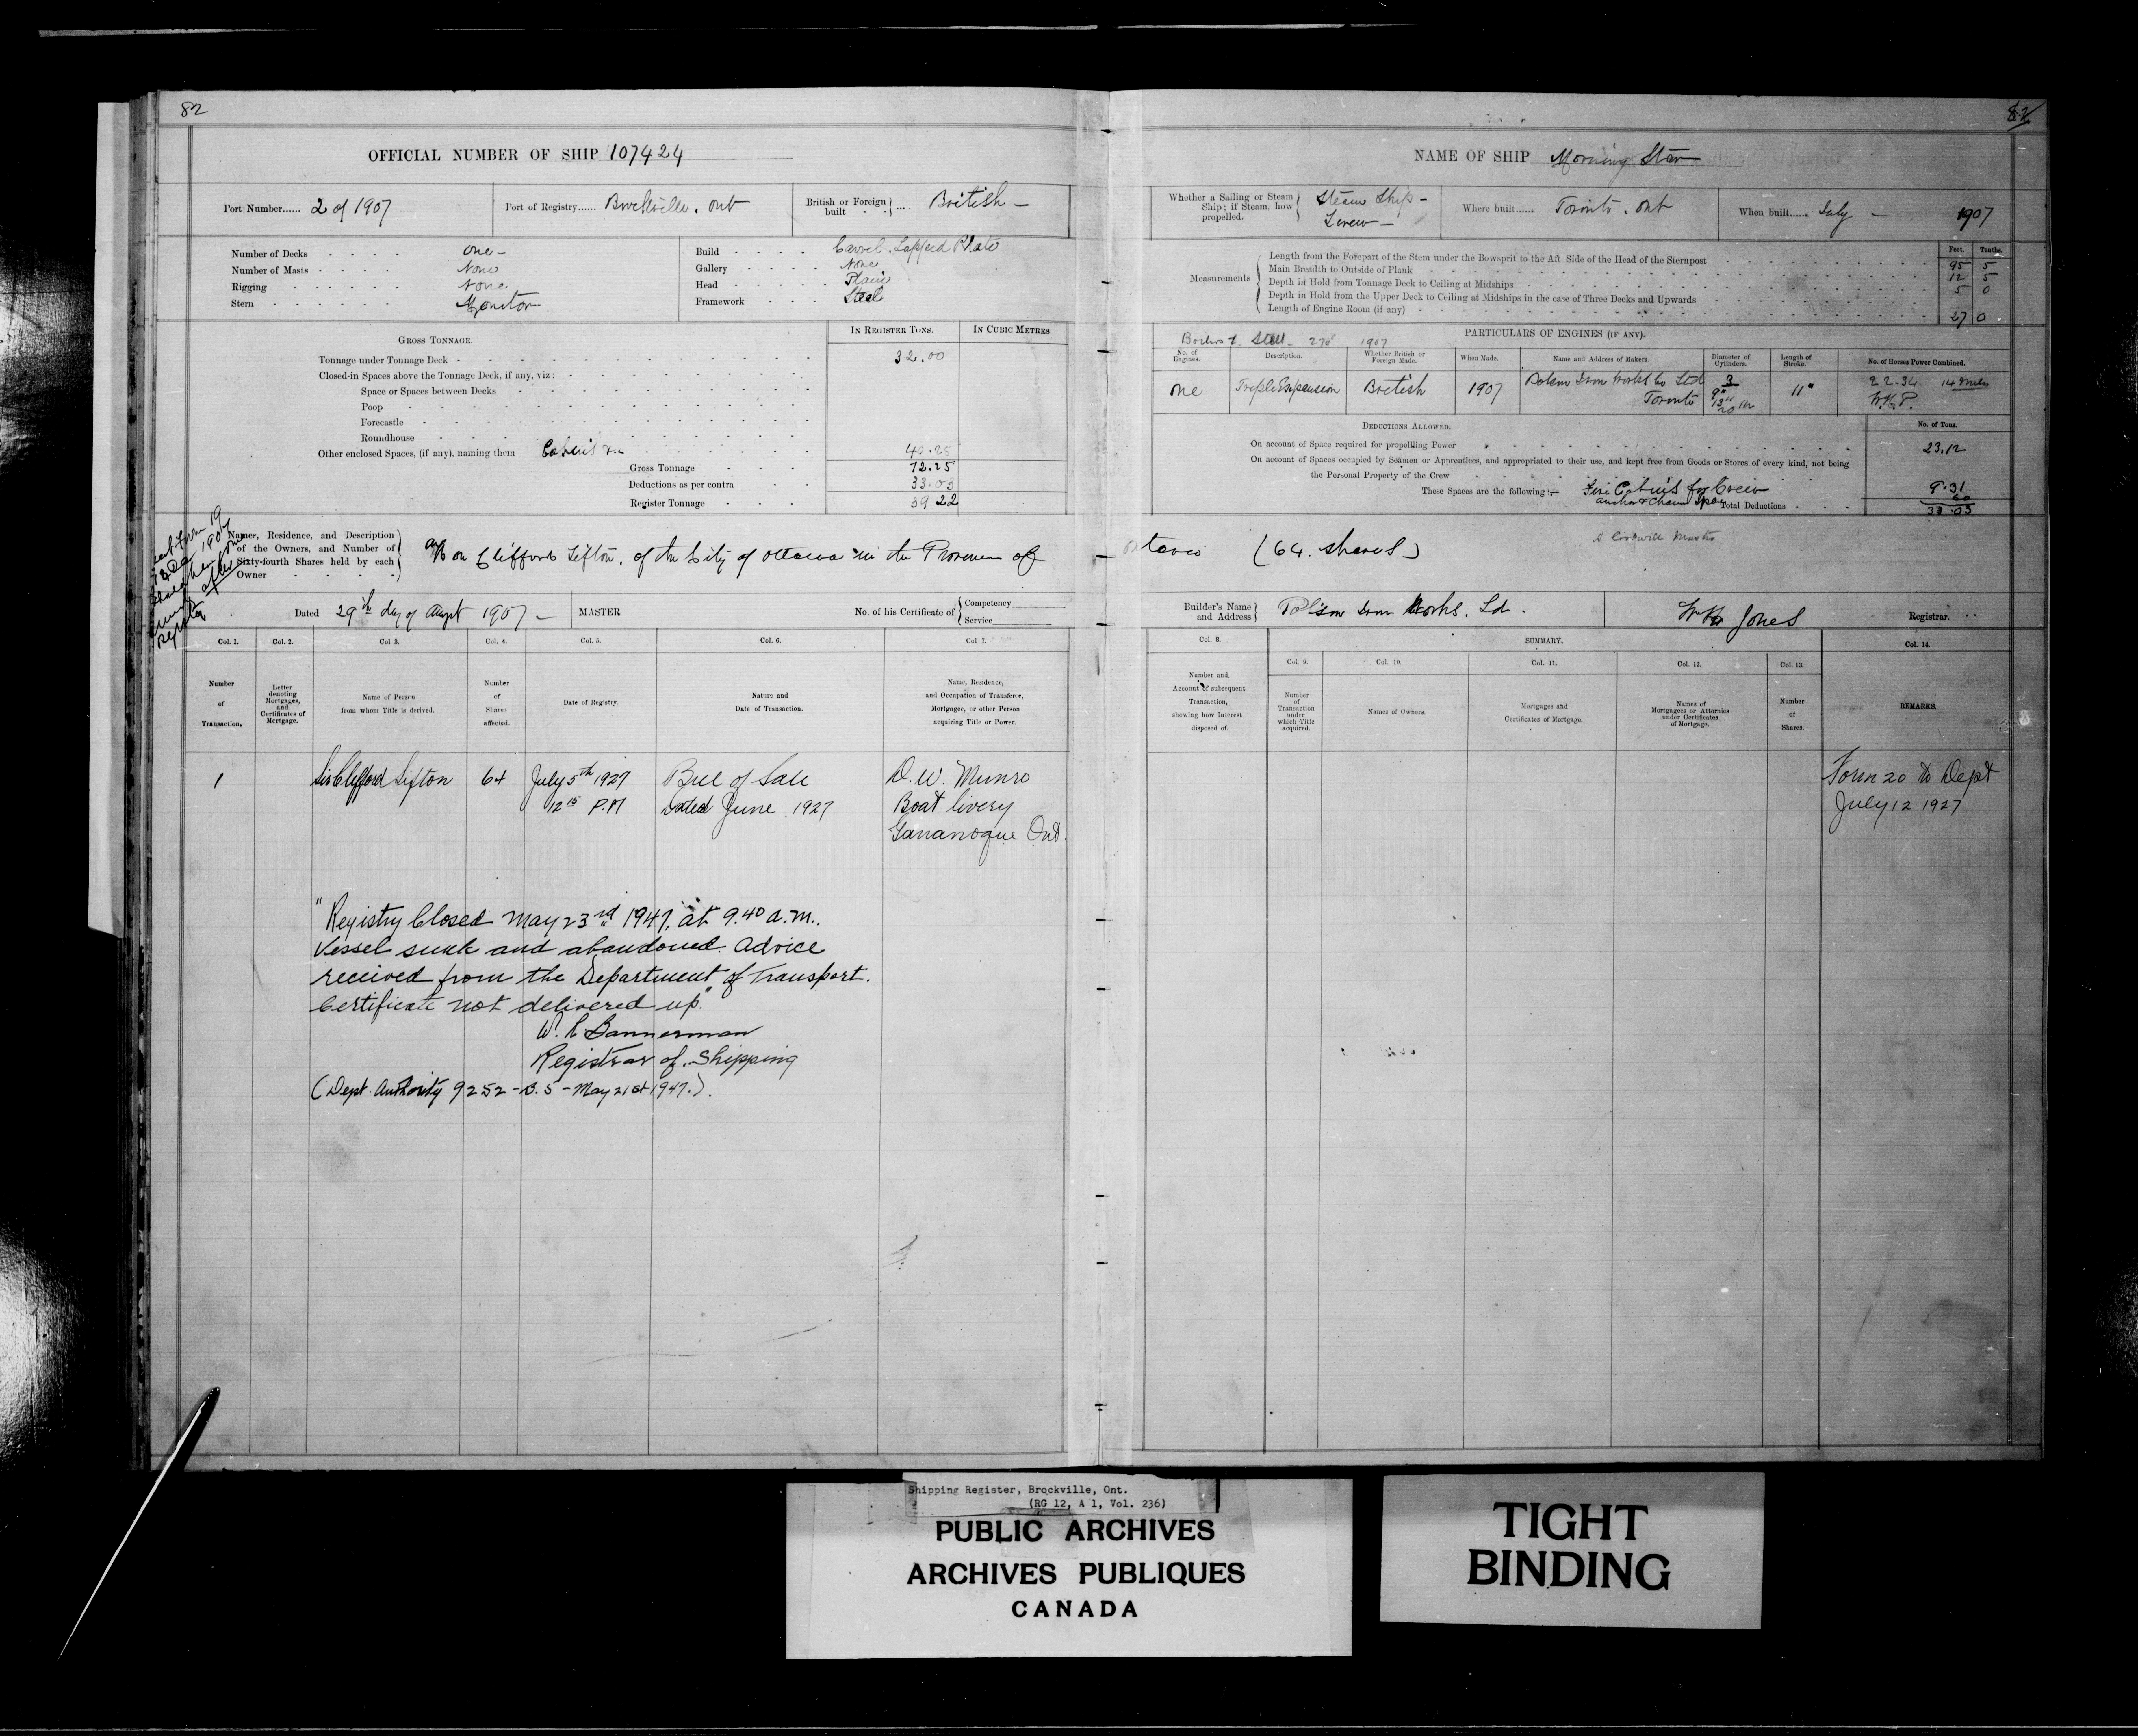 82
OFFICIAL NUMBER OF SHIP 107424
Port Number...... 2 of 1907
Port of Registry...... Brockville. Ont
British or Foreign built .... British -
Number of Decks One -
Number of Masts None
Rigging None
Stern Monitor
Build Carvel. Lapped Plate
Gallery None
Head Plain
Framework Steel
GROSS TONNAGE.
IN REGISTER TONS.
IN CUBIC METRES
Tonnage under Tonnage Deck 32.00
Closed-in Spaces above the Tonnage Deck, if any, viz:
Space or Spaces between Decks
Poop
Forecastle
Roundhouse
Other enclosed Spaces, (if any), naming them Cabins &c 40.25
Gross Tonnage 72.25
Deductions as per contra 33.03
Register Tonnage 39 22
Names, Residence, and Description of the Owners, and Number of Sixty-fourth Shares held by each Owner
Hon Clifford Sifton, of the City of Ottawa in the Province of
Dated 29th day of August 1907 -
MASTER
No. of his Certificate of Competency
Service
Col. 1.
Col. 2.
Col 3.
Col. 4.
Col. 5.
Col. 6.
Col 7.
Number of Transaction.
Letter denoting Mortgages, and Certificates of Mortgage.
Name of Person from whom Title is derived.
Number of Shares affected.
Date of Registry.
Nature and Date of Transaction.
Name, Residence, and Occupation of Transferee, Mortgagee, or other Person acquiring Title or Power.
1
Sir Clifford Sifton
64
July 5th 1927
12 15 P.M
Bill of Sale
Dated June 1927
D. W. Munro
Boat livery
Gananoque Ont.
"Registry Closed May 23rd 1947, at 9.40 a.m.
Vessel sunk and abandoned. Advice
received from the Department of Transport.
Certificate not delivered up."
Bannerman
Registrar of Shipping
(Dept. Authority 9252 - B. 5 - May 21st 1947.).
82
NAME OF SHIP Morning Star
Whether a Sailing or Steam Ship; if Steam, how propelled.
Steam Ship -
Screw -
Where built...... Toronto. Ont
When built...... July - 1907
Measurements
Feet. Tenths.
Length from the Forepart of the Stem under the Bowsprit to the Aft Side of the Head of the Sternpost 95 5
Main Breadth to Outside of Plank 12 5
Depth in Hold from Tonnage Deck to Ceiling at Midships 5 0
Depth in Hold from the Upper Deck to Ceiling at Midships in the case of Three Decks and Upwards
Length of Engine Room (if any) 27 0
PARTICULARS OF ENGINES (IF ANY).
Steel 1907
No. of Engines.
Description.
Whether British or Foreign Made.
When Made.
Name and Address of Makers.
Diameter of Cylinders.
Length of Stroke.
No. of Horses Power Combined.
One
Triple Expansion
British
1907
Polson Iron Works Co Ltd
Toronto
3
9"
13"
20
11"
22.34
14 Miles
DEDUCTIONS ALLOWED.
No. of Tons.
On account of Space required for propelling Power 23.12
On account of Spaces occupied by Seamen or Apprentices, and appropriated to their use, and kept free from Goods or Stores of every kind, not being
the Personal Property of the Crew
These Spaces are the following :— Cabins for Crew 9.31
60
Total Deductions 33.03
Ontario (64. shares)
Builder's Name and Address Polson Iron Works. Ld.
Jones
Registrar.
Col. 8.
SUMMARY.
Col. 14.
Col. 9.
Col. 10.
Col. 11.
Col. 12.
Col. 13.
Number and, Account of subsequent Transaction, showing how Interest disposed of.
Number of Transaction under which Title acquired.
Names of Owners.
Mortgages and Certificates of Mortgage.
Names of Mortgagees or Attornies under Certificates of Mortgage.
Number of Shares.
REMARKS.
Form 20 to Dept
July 12 1927
Shipping Register, Brockville, Ont.
(RG 12, A 1, Vol. 236)
PUBLIC ARCHIVES
ARCHIVES PUBLIQUES
CANADA
TIGHT
BINDING